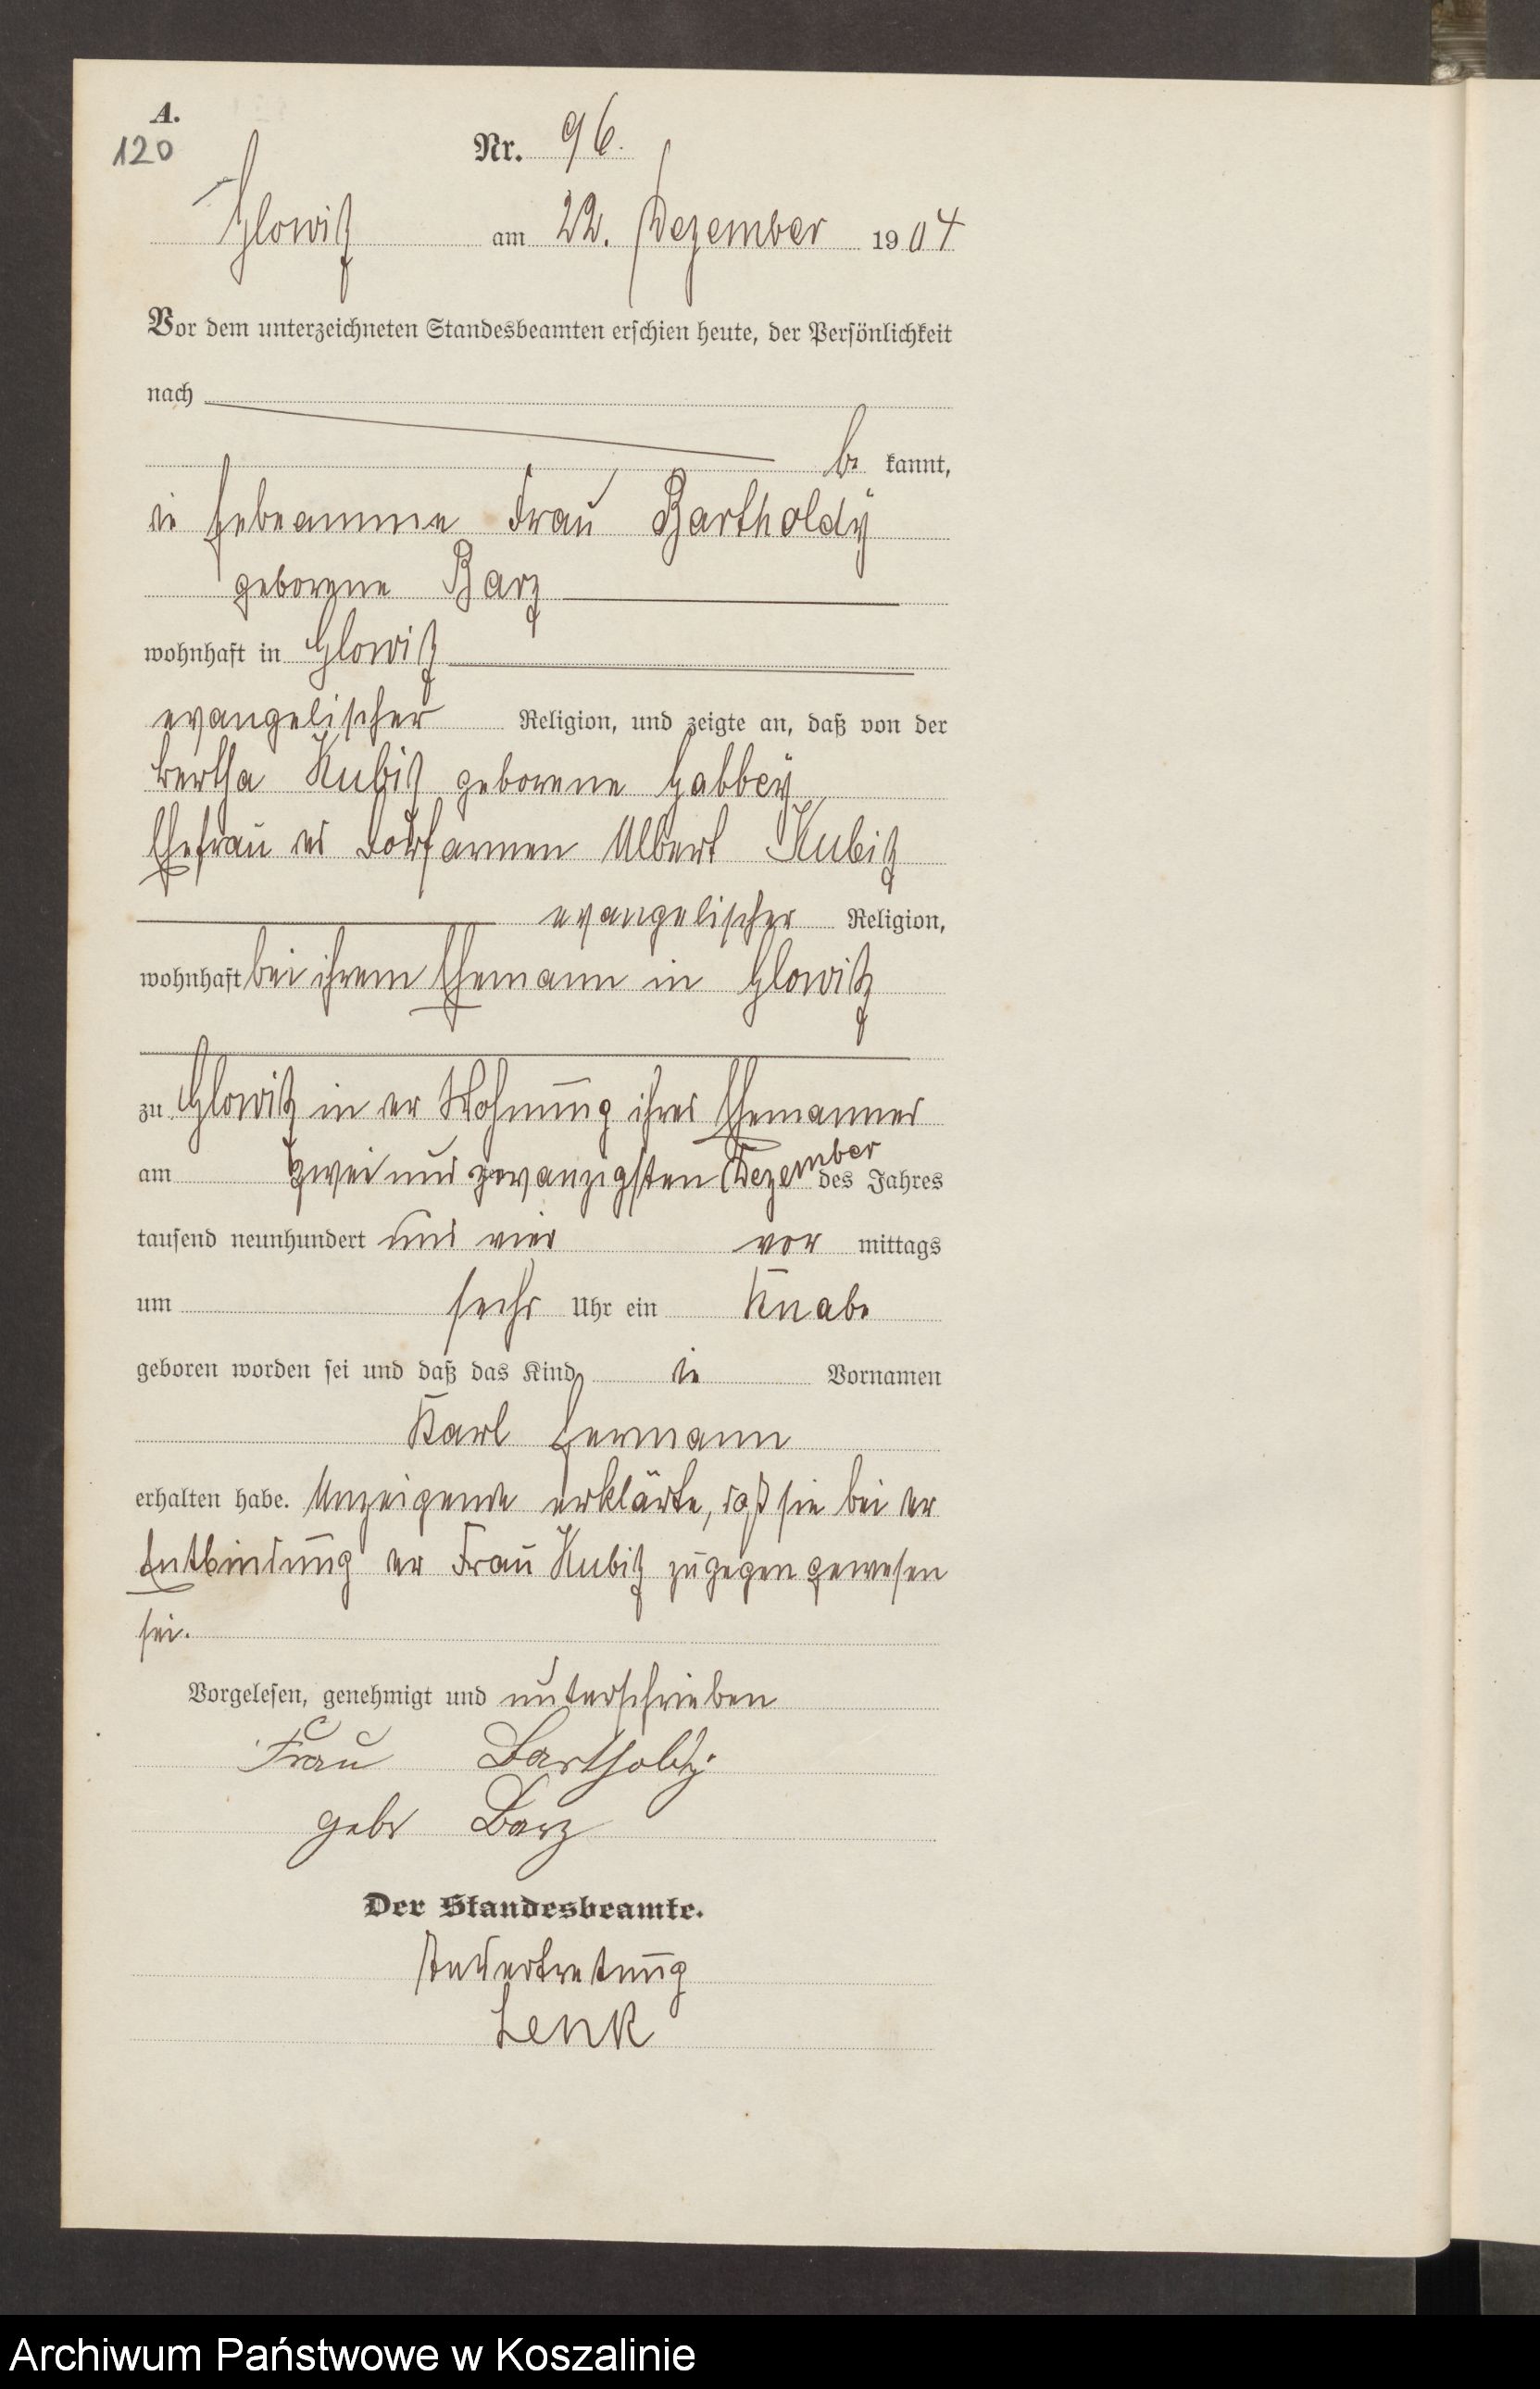 A.
120
Nr. 96.
Glowitz am 22. Dezember 1904
Vor dem unterzeichneten Standesbeamten erschien heute, der Persönlichkeit
nach
be kannt,
die Hebeamme Frau Bartholdy
geborene Barz
wohnhaft in Glowitz
evangelischer Religion, und zeigte an, daß von der
Bertha Kubitz geborene Gabbey
Ehefrau des Dorfarmen Albert Kubitz
evangelischer Religion,
wohnhaft bei ihrem Ehemann in Glowitz
zu Glowitz in der Wohnung ihres Ehemannes
am zwei und zwanzigsten Dezember des Jahres
tausend neunhundert und vier vor mittags
um sechs Uhr ein Knabe
geboren worden sei und daß das Kind die Vornamen
Karl Hermann
erhalten habe. Anzeigende erklärte, daß sie bei der
Entbindung der Frau Kubitz zugegen gewesen
sei.
Vorgelesen, genehmigt und unterschrieben
Frau Bartholdy
gebr Barz
Der Standesbeamte.
In Vertretung
Lenk
Archiwum Państwowe w Koszalinie